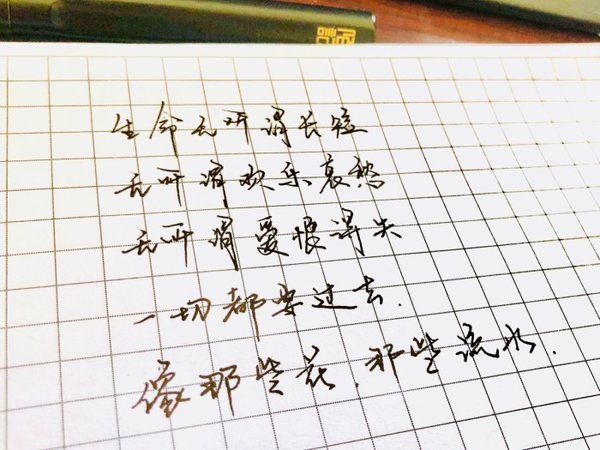 生命无所谓长短
无所谓欢乐哀愁
无所谓爱恨得失
一切都要过去.
像那些花.那些流水.